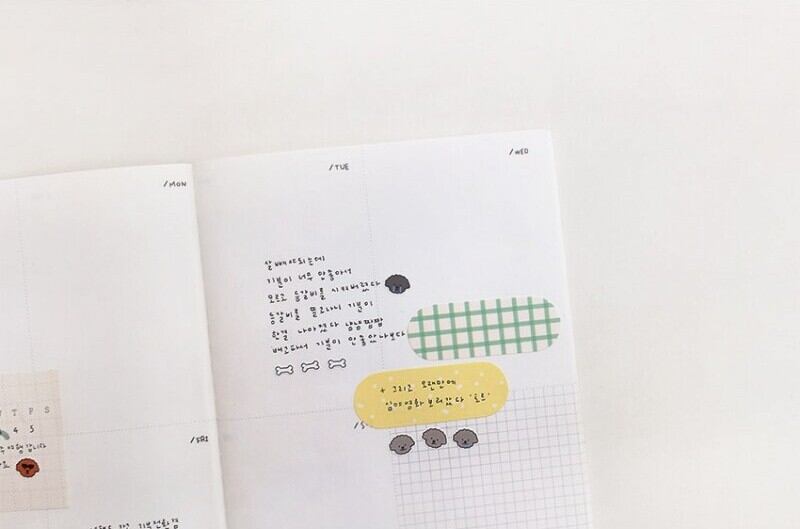 /MON
/TUE
/WED
살빼야되는데
기분이 너무 안좋아서
모르고 등갈비를 시켜버렸다
등갈비를 먹고나니 기분이
한결 나아졌다 냠냠쩝쩝
배고파서 기분이 안좋았나보다
+ 그리고 오랜만에
심야영화 보러갔다 '토르'
T F S
4 5
/FRI
/S